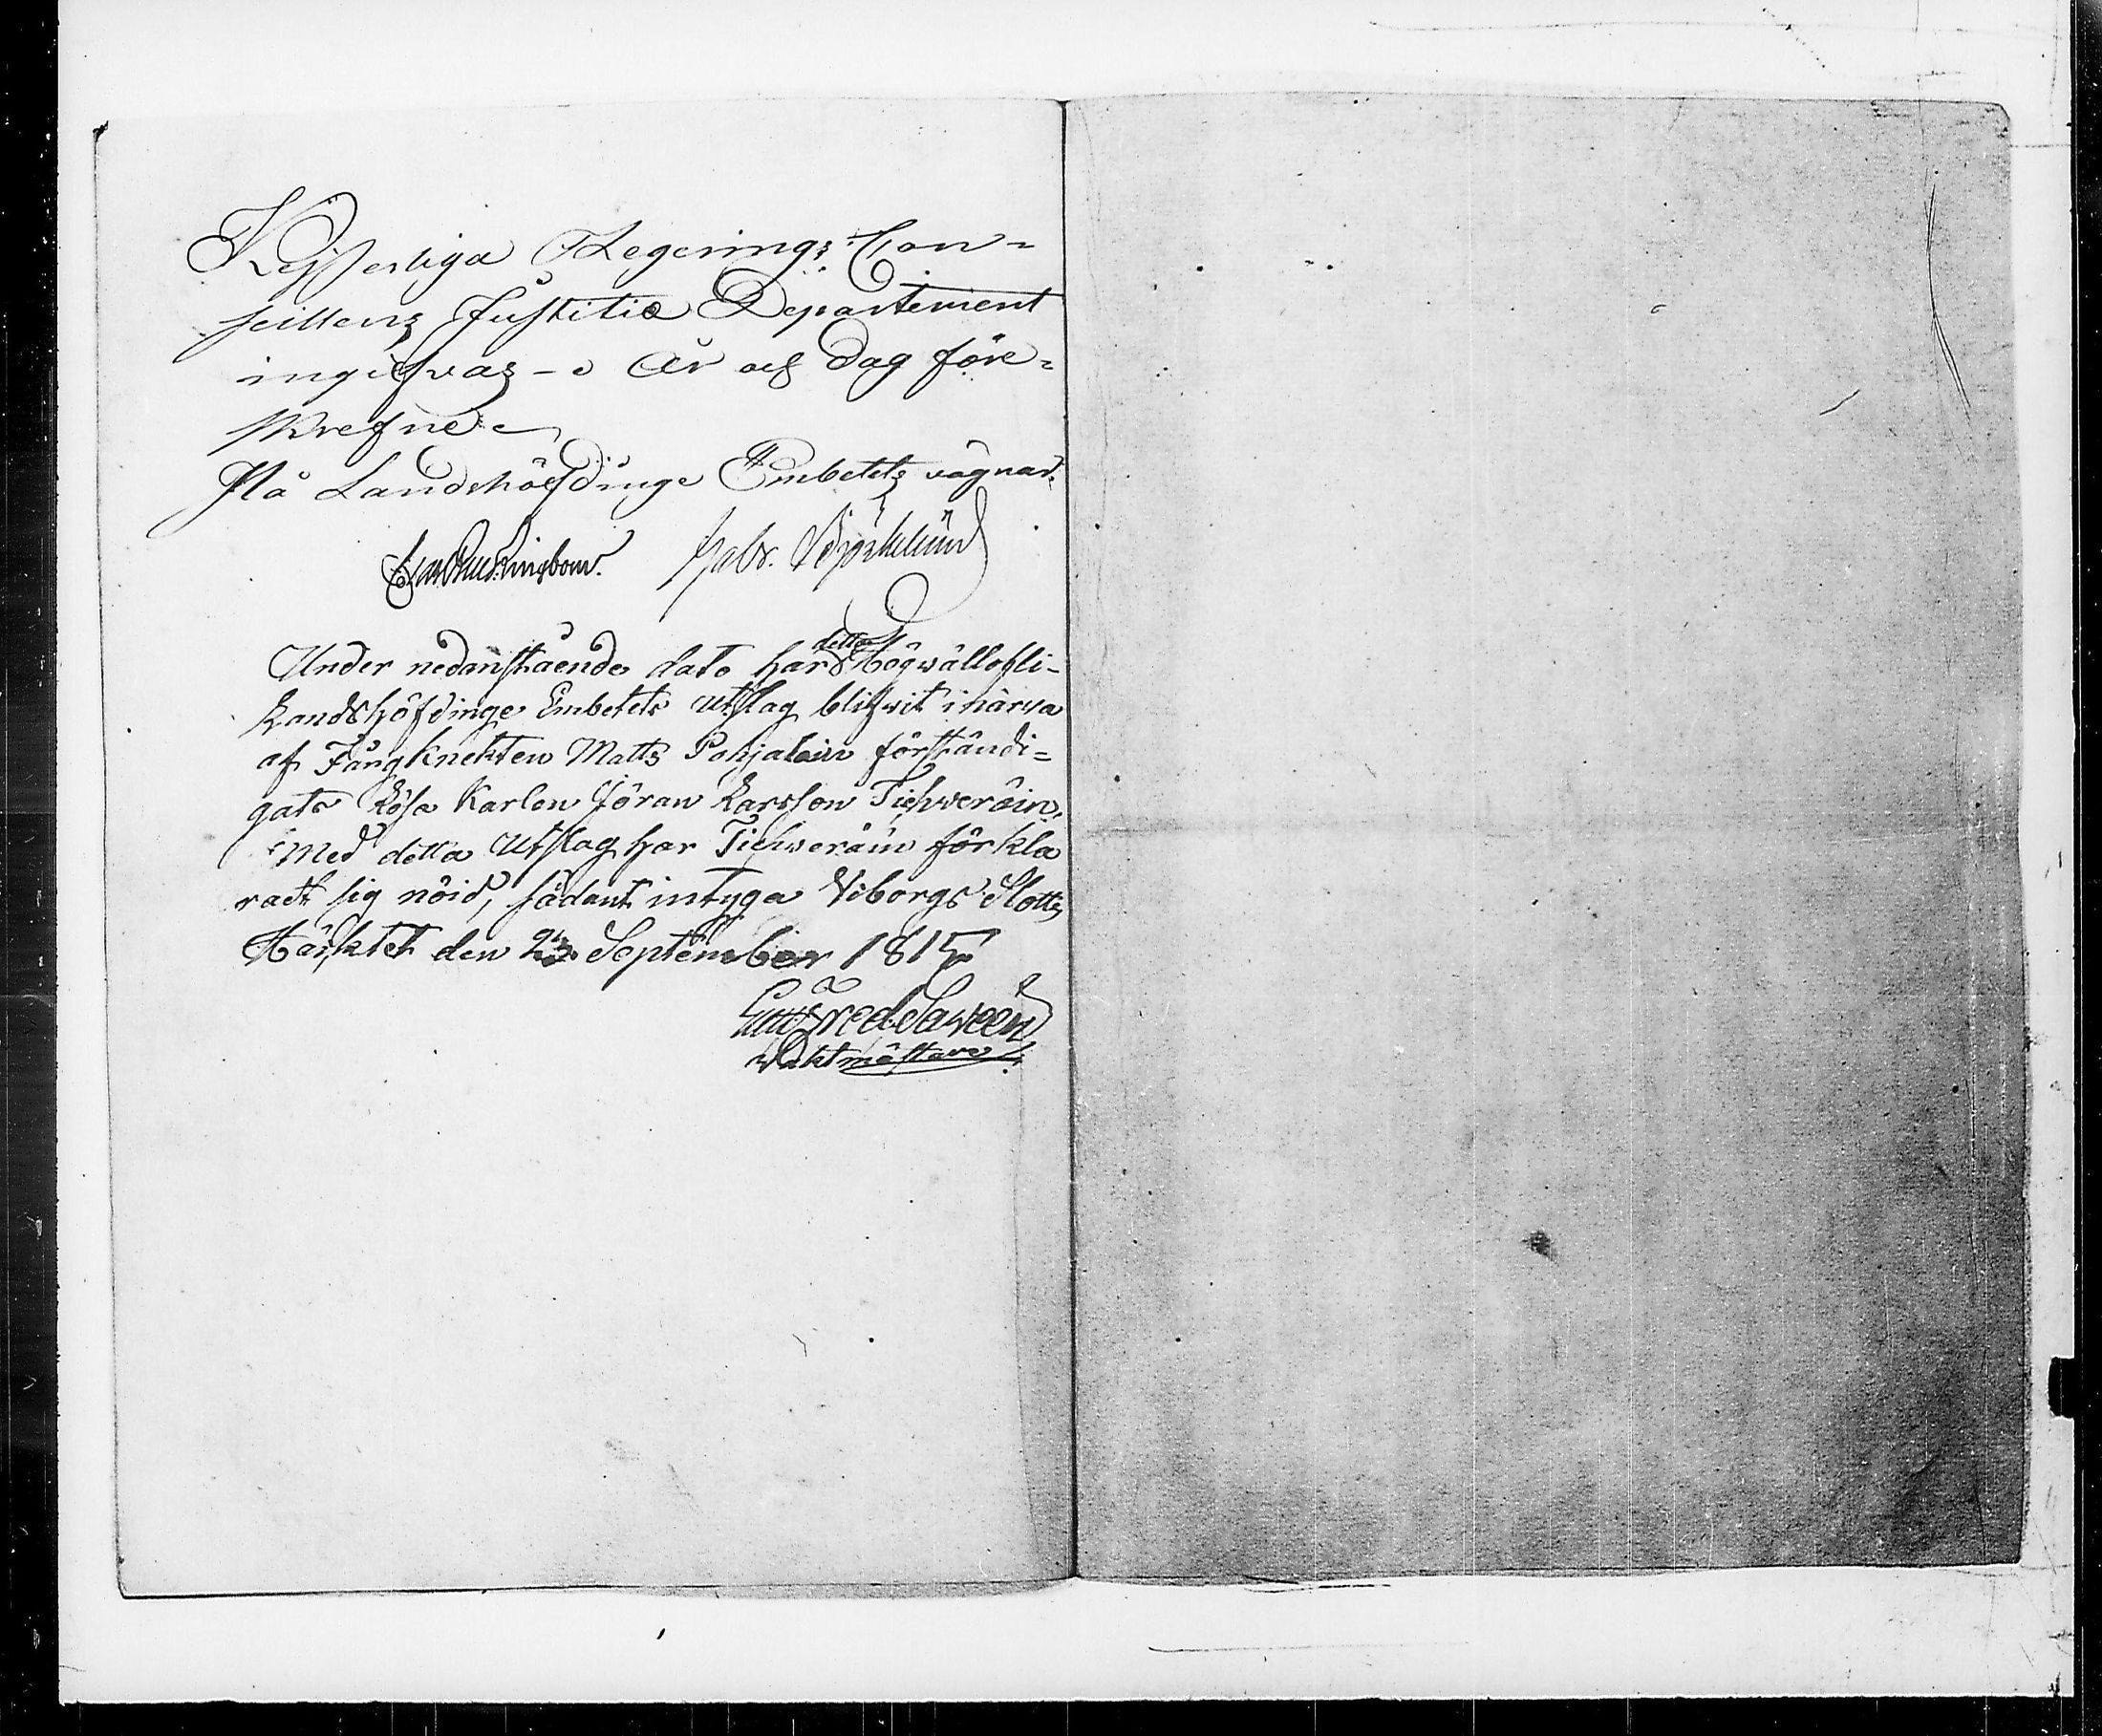 Kejserliga Regerings Con-
seillens Justitiæ Departement
ingifvas - År och dag före-
skrefne
På Landshöfdinge Embetets vägnar.
Ringbom. Gabr. Björklund
Under nedanstående dato har detta Högvällofli-
Landshöfdinge Embetets utslag blifwit i närwa
af Fångknekten Matts Pohjalain förständi-
gats Lösa Karlen Jöran Larsson Tichweräin,
Med detta utslag har Tichweräin förkla
radt sig nöid, sådant intyga Viborgs Slotts
Häcktet den September 1815
Gottfred Saween
Waktmästare